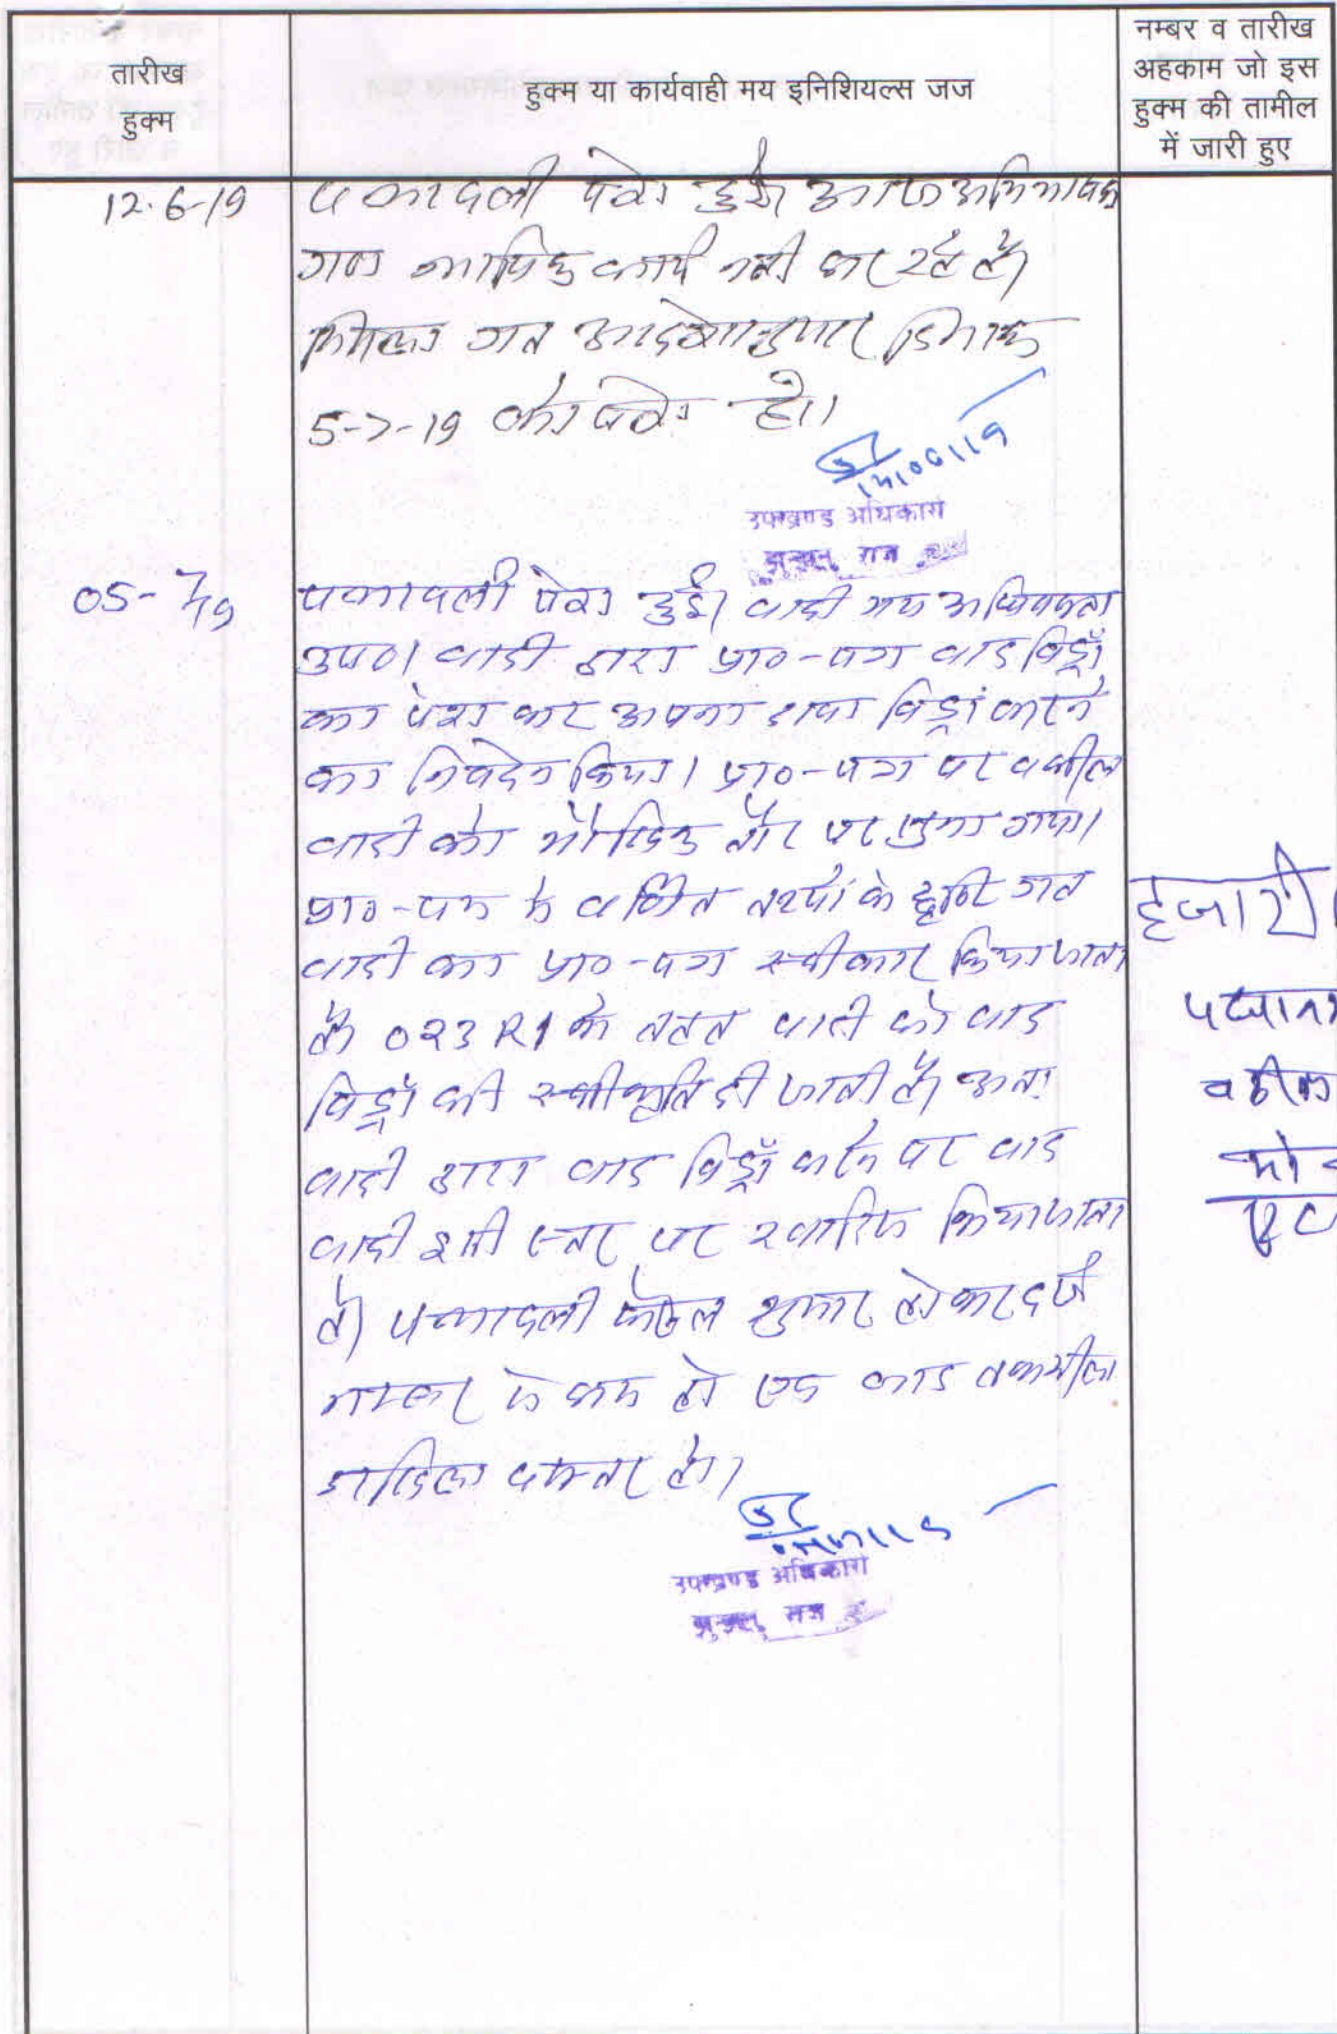 तारीख
हुक्म
हुक्म या कार्यवाही मय इनिशियल्स जज
नम्बर व तारीख
अहकाम जो इस
हुक्म की तामील
में जारी हुए
12-6-19
पत्रावली पेश हुई। आज अभिभाषक
गण न्यायिक कार्य नहीं कर रहे है।
मिसल गत आदेशानुसार दिनांक
5-7-19 को पेश हो।
उपखण्ड अधिकारी
झुन्झुनू राज
05-7/19
पत्रावली पेश हुई। वादी मय अधिवक्ता
उप०। वादी द्वारा प्रा०-पत्र वाद विड्रॉ
का पेश कर अपना दावा विड्रॉ करने
का निवेदन किया। प्रा०-पत्र पर वकील
वादी को मौखिक तौर पर सुना गया।
प्रा०-पत्र मे वर्णित तथ्यों के दृष्टि गत
वादी का प्रा०-पत्र स्वीकार किया जाता
है। O23 R1 के तहत वादी को वाद
विड्रॉ की स्वीकृति दी जाती है। अतः
वादी द्वारा वाद विड्रॉ करने पर वाद
वादी इसी स्तर पर खारिज किया जाता
है। पत्रावली फैसल शुमार होकर दर्ज
नम्बर से कम हो एवं बाद तकमील
दाखिल दफ्तर हो।
उपखण्ड अधिकारी
झुन्झुनू राज
हजारी